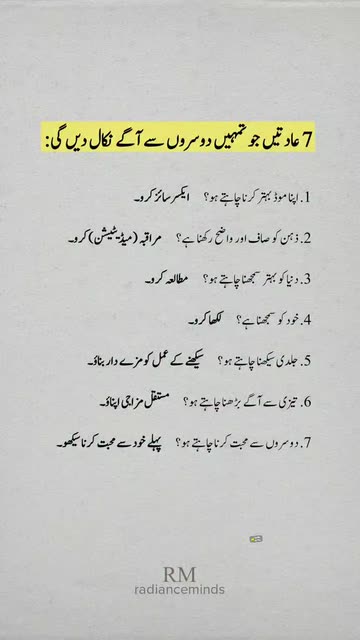 7 عادتیں جو تمہیں دوسروں سے آگے نکال دیں گی:
1. اپنا موڈ بہتر کرنا چاہتے ہو؟ ایکسرسائز کرو۔
2. ذہن کو صاف اور واضح رکھنا ہے؟ مراقبہ (میڈیٹیشن) کرو۔
3. دنیا کو بہتر سمجھنا چاہتے ہو؟ مطالعہ کرو۔
4. خود کو سمجھنا ہے؟ لکھا کرو۔
5. جلدی سیکھنا چاہتے ہو؟ سیکھنے کے عمل کو مزے دار بناؤ۔
6. تیزی سے آگے بڑھنا چاہتے ہو؟ مستقل مزاجی اپناؤ۔
7. دوسروں سے محبت کرنا چاہتے ہو؟ پہلے خود سے محبت کرنا سیکھو۔
RM
radianceminds